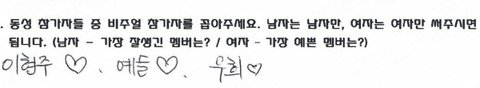 . 동성 참가자들 중 비주얼 참가자를 꼽아주세요. 남자는 남자만, 여자는 여자만 써주시면
됩니다. (남자 – 가장 잘생긴 멤버는? / 여자 – 가장 예쁜 멤버는?)
이협주 ♡. 예들 ♡. 우희 ♡